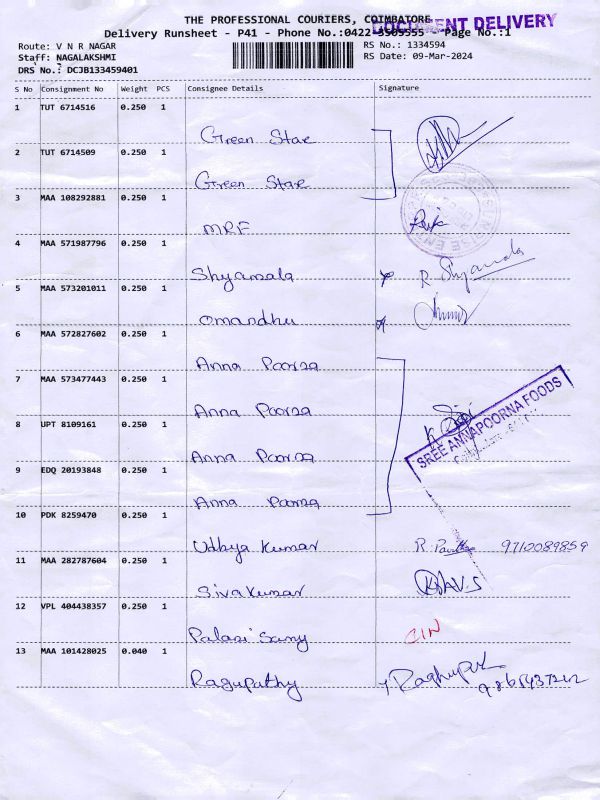 THE PROFESSIONAL COURIERS, COIMBATORE
DOCUMENT DELIVERY
Delivery Runsheet - P41 - Phone No.:0422-3505555 - Page No.:1
Route: V N R NAGAR
RS No.: 1334594
Staff: NAGALAKSHMI
RS Date: 09-Mar-2024
DRS No.: DCJB133459401
S No Consignment No Weight PCS Consignee Details Signature
1 TUT 6714516 0.250 1
Green Star
2 TUT 6714509 0.250 1
Green Star
3 MAA 108292881 0.250 1
MRF
4 MAA 571987796 0.250 1
Shyamala R. Shyamala
5 MAA 573201011 0.250 1
Omandhu
6 MAA 572827602 0.250 1
Anna Poorna
7 MAA 573477443 0.250 1
Anna Poorna
8 UPT 8109161 0.250 1
SREE ANNAPOORNA FOODS
Anna Poorna
9 EDQ 20193848 0.250 1
Anna Poorna
10 PDK 8259470 0.250 1
Udhya Kumar R. 9710089859
11 MAA 282787604 0.250 1
Siva Kumar
12 VPL 404438357 0.250 1
Palani Samy CIN
13 MAA 101428025 0.040 1
Ragupathy